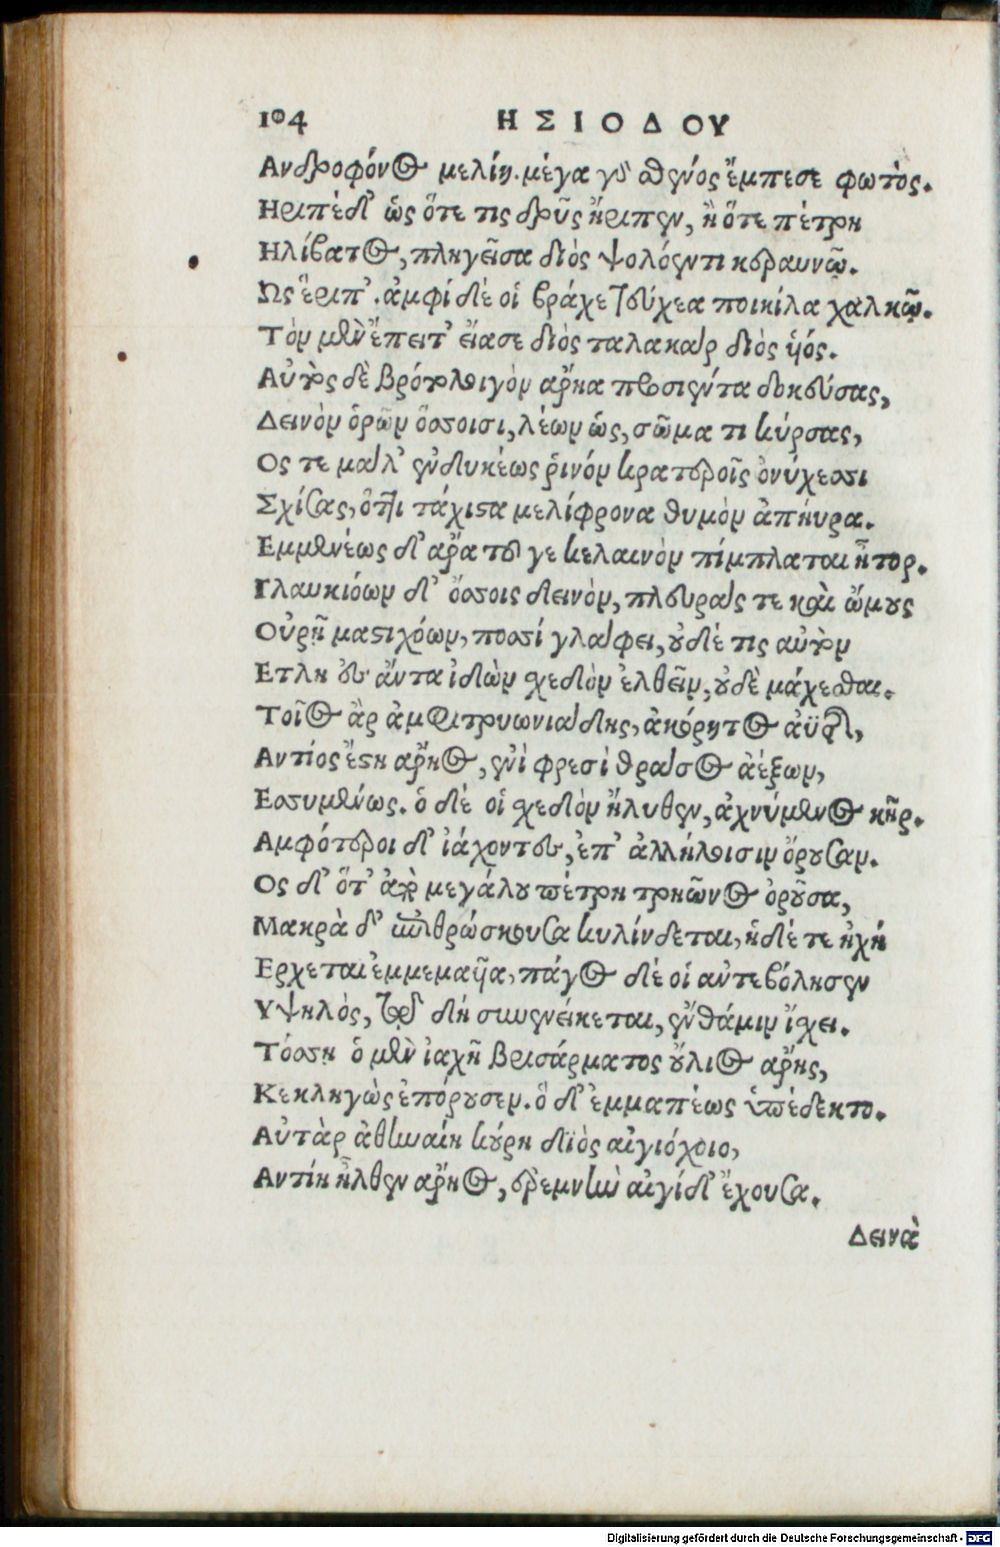 104 ΗΣΙΟΔΟΥ
Ανδροφόνος μελίη. μέγα γὰρ σθένος ἔμπεσε φωτὸς.
Ηριπὲ δ' ὡς ὅτε τις δρῦς ἤριπεν, ἢ ὅτε πέτρη
Ηλίβατος, πληγεῖσα διὸς ψολόεντι κεραυνῷ.
Ως ἔριπ'. ἀμφὶ δέ οἱ βράχε τεύχεα ποικίλα χαλκῷ.
Τὸν μὲν ἔπειτ' εἴασε διὸς ταλακάρδιος ὑιός.
Αὐτὸς δὲ βρότολοιγὸν ἄρηα προσιόντα δοκεύσας,
Δεινὸν ὁρῶν ὄσσοισι, λέων ὡς, σῶμα τι κύρσας,
Ος τε μάλ' ἐνδυκέως ῥινόν κρατεροῖς ὀνύχεσσι
Σχίσας, ὅττι τάχιστα μελίφρονα θυμὸν ἀπηύρα.
Εμμενέως δ' ἄρα τοῦ γε κελαινὸν πίμπλαται ἦτορ.
Γλαυκιόων δ' ὄσσοις δεινὸν, πλευράς τε καὶ ὤμους
Οὐρῇ μαστιχόων, ποσσί γλάφει, οὐδέ τις αὐτὸν
Ετλη ἐς ἄντα ἰδὼν σχεδὸν ἐλθεῖν, οὐδὲ μάχεσθαι.
Τοῖος ἂρ ἀμφιτρυωνιάδης, ἀκόρητος ἀϋτῆς,
Αντίος ἔστη ἄρηος, ἐνὶ φρεσὶ θράσος ἀέξων,
Εσσυμένως. ὁ δέ οἱ σχεδὸν ἤλυθεν, ἀχνύμενος κῆρ.
Αμφότεροι δ' ἰάχοντες, ἐπ' ἀλλήλοισιν ὄρουσαν.
Ος δ' ὅτ' ἀπὸ μεγάλου πέτρη πρηῶνος ὀροῦσα,
Μακρὰ δ' ἐπιθρώσκουσα κυλίνδεται, ἡ δέ τε ἠχή
Ερχεται ἐμμεμαυῖα, πάγος δέ οἱ ἀντεβόλησεν
Υψηλὸς, τῷ δὴ συνενείκεται, ἔνθά μιν ἴχει.
Τόσση ὁ μὲν ἰαχῇ βρισάρματος οὔλιος ἄρης,
Κεκληγὼς ἐπόρουσεν. ὁ δ' ἐμμαπέως ὑπέδεκτο.
Αὐτὰρ ἀθηναίη κούρη διὸς αἰγιόχοιο,
Αντίη ἦλθεν ἄρηος, ἐρεμνὴν αἰγίδ' ἔχουσα.
Δεινὰ
Digitalisierung gefördert durch die Deutsche Forschungsgemeinschaft - DFG